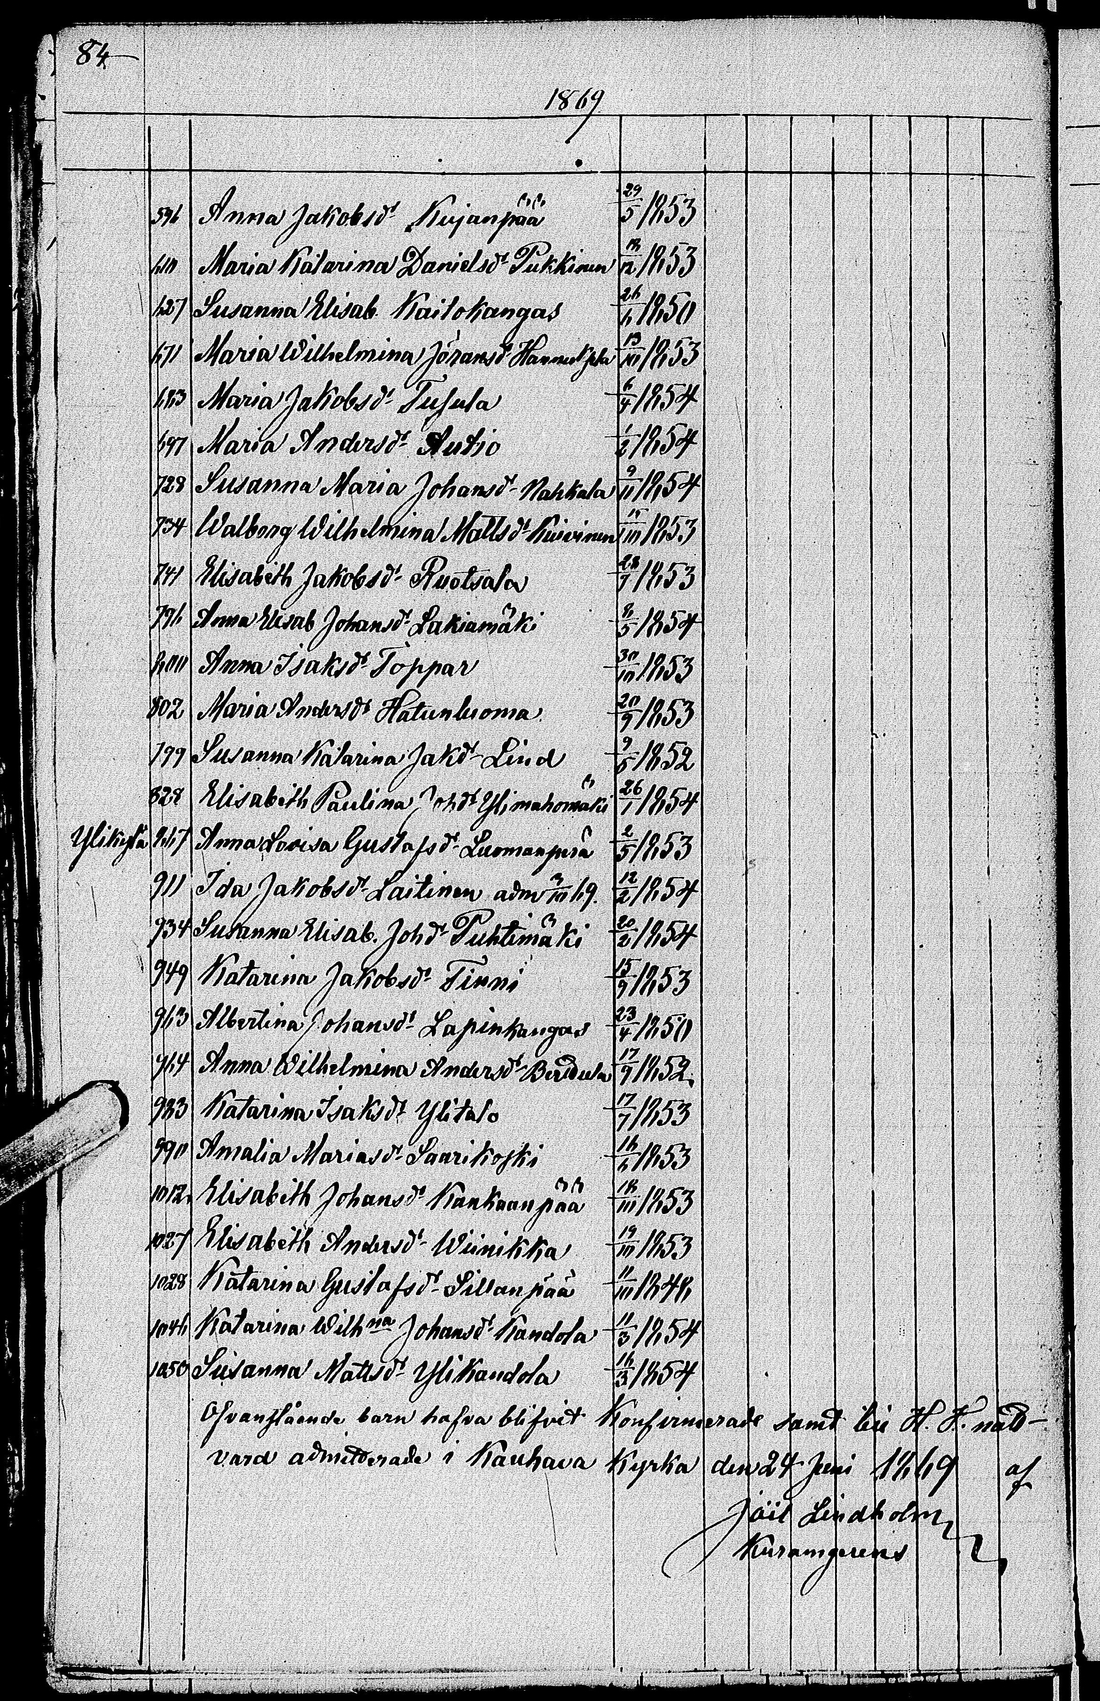 84
1869
596 Anna Jakobsdr Kujanpää 29/5 1853
610 Maria Katarina Danielsdr Pukkinen 18/12 1853
627 Susanna Elisab. Kaitokangas 26/6 1850
671 Maria Wilhelmina Göransdr 13/10 1853
683 Maria Jakobsdr Tusula 6/4 1854
697 Maria Andersdr Autio 1/2 1854
728 Susanna Maria Johansdr Nahkala 9/11 1854
734 Walborg Wilhelmina Mattsdr Kuivinen 15/10 1853
741 Elisabeth Jakobsdr Ruotsala 28/7 1853
796 Anna Elisab Johansdr Lakiamäki 8/5 1854
800 Anna Isaksdr Toppar 30/10 1853
802 Maria Andersdr Hatunluoma 20/9 1853
799 Susanna Katarina Jakdr Lind 9/5 1852
828 Elisabeth Paulina Johdr Ylimahomäki 26/1 1854
Ylikylä 867 Anna Lovisa Gustafsdr Luomanperä 2/5 1853
911 Ida Jakobsdr Laitinen adm 3/10 69. 12/2 1854
934 Susanna Elisab. Johdr Puhtimäki 20/2 1854
949 Katarina Jakobsdr Finni 15/9 1853
963 Albertina Johansdr Lapinkangas 23/4 1850
964 Anna Wilhelmina Andersdr 17/9 1852
983 Katarina Isaksdr Ylitalo 17/7 1853
990 Amalia Mariasdr Saarikoski 16/6 1853
1012 Elisabeth Johansdr Kankaanpää 18/10 1853
1027 Elisabeth Andersdr Wiinikka 19/10 1853
1028 Katarina Gustafsdr Sillanpää 11/10 1848
1046 Katarina Wilhna Johansdr Kandola 11/3 1854
1050 Susanna Mattsdr Ylikandola 16/3 1854
Ofvanstående barn hafva blifvit Konfirmerade samt till H. H. natt-
vard admitterade i Kauhava Kyrka den 24 Juni 1869 af
Joël Lindholm